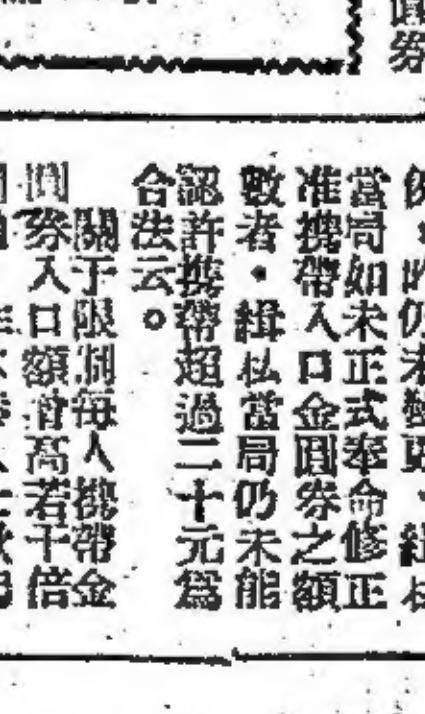 圓券
例，昨仍未變更，緝私
當局如未正式奉命修正
准携帶入口金圓券之額
數者•緝私當局仍未能
認許携帶超過二十元爲
合法云。
關于限制每人携帶金
圓券入口額增高若干倍